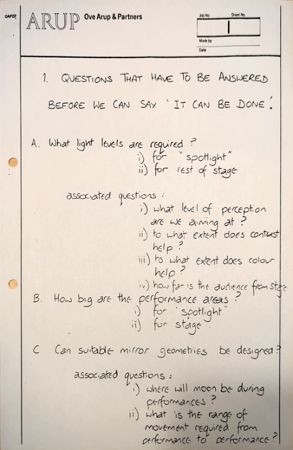 OAP37
ARUP Ove Arup & Partners
Job No. Sheet No.
1
Made by
Date
1. QUESTIONS THAT HAVE TO BE ANSWERED
BEFORE WE CAN SAY 'IT CAN BE DONE'.
A. What light levels are required?
i) for "spotlight"
ii) for rest of stage
associated questions:
i) what level of perception
are we aiming at?
ii) to what extent does contrast
help?
iii) to what extent does colour
help?
iv) how far is the audience from stage
B. How big are the performance areas?
i) for "spotlight"
ii) for stage
C Can suitable mirror geometries be designed?
associated questions:
i) where will moon be during
performances?
ii) what is the range of
movement required from
performance to performance?